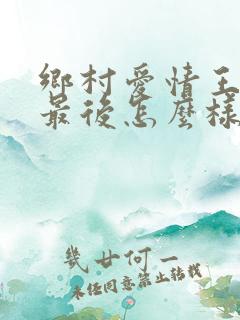 鄉村愛情王
最後怎麼樣
幾廿何一
未經同意禁止轉載